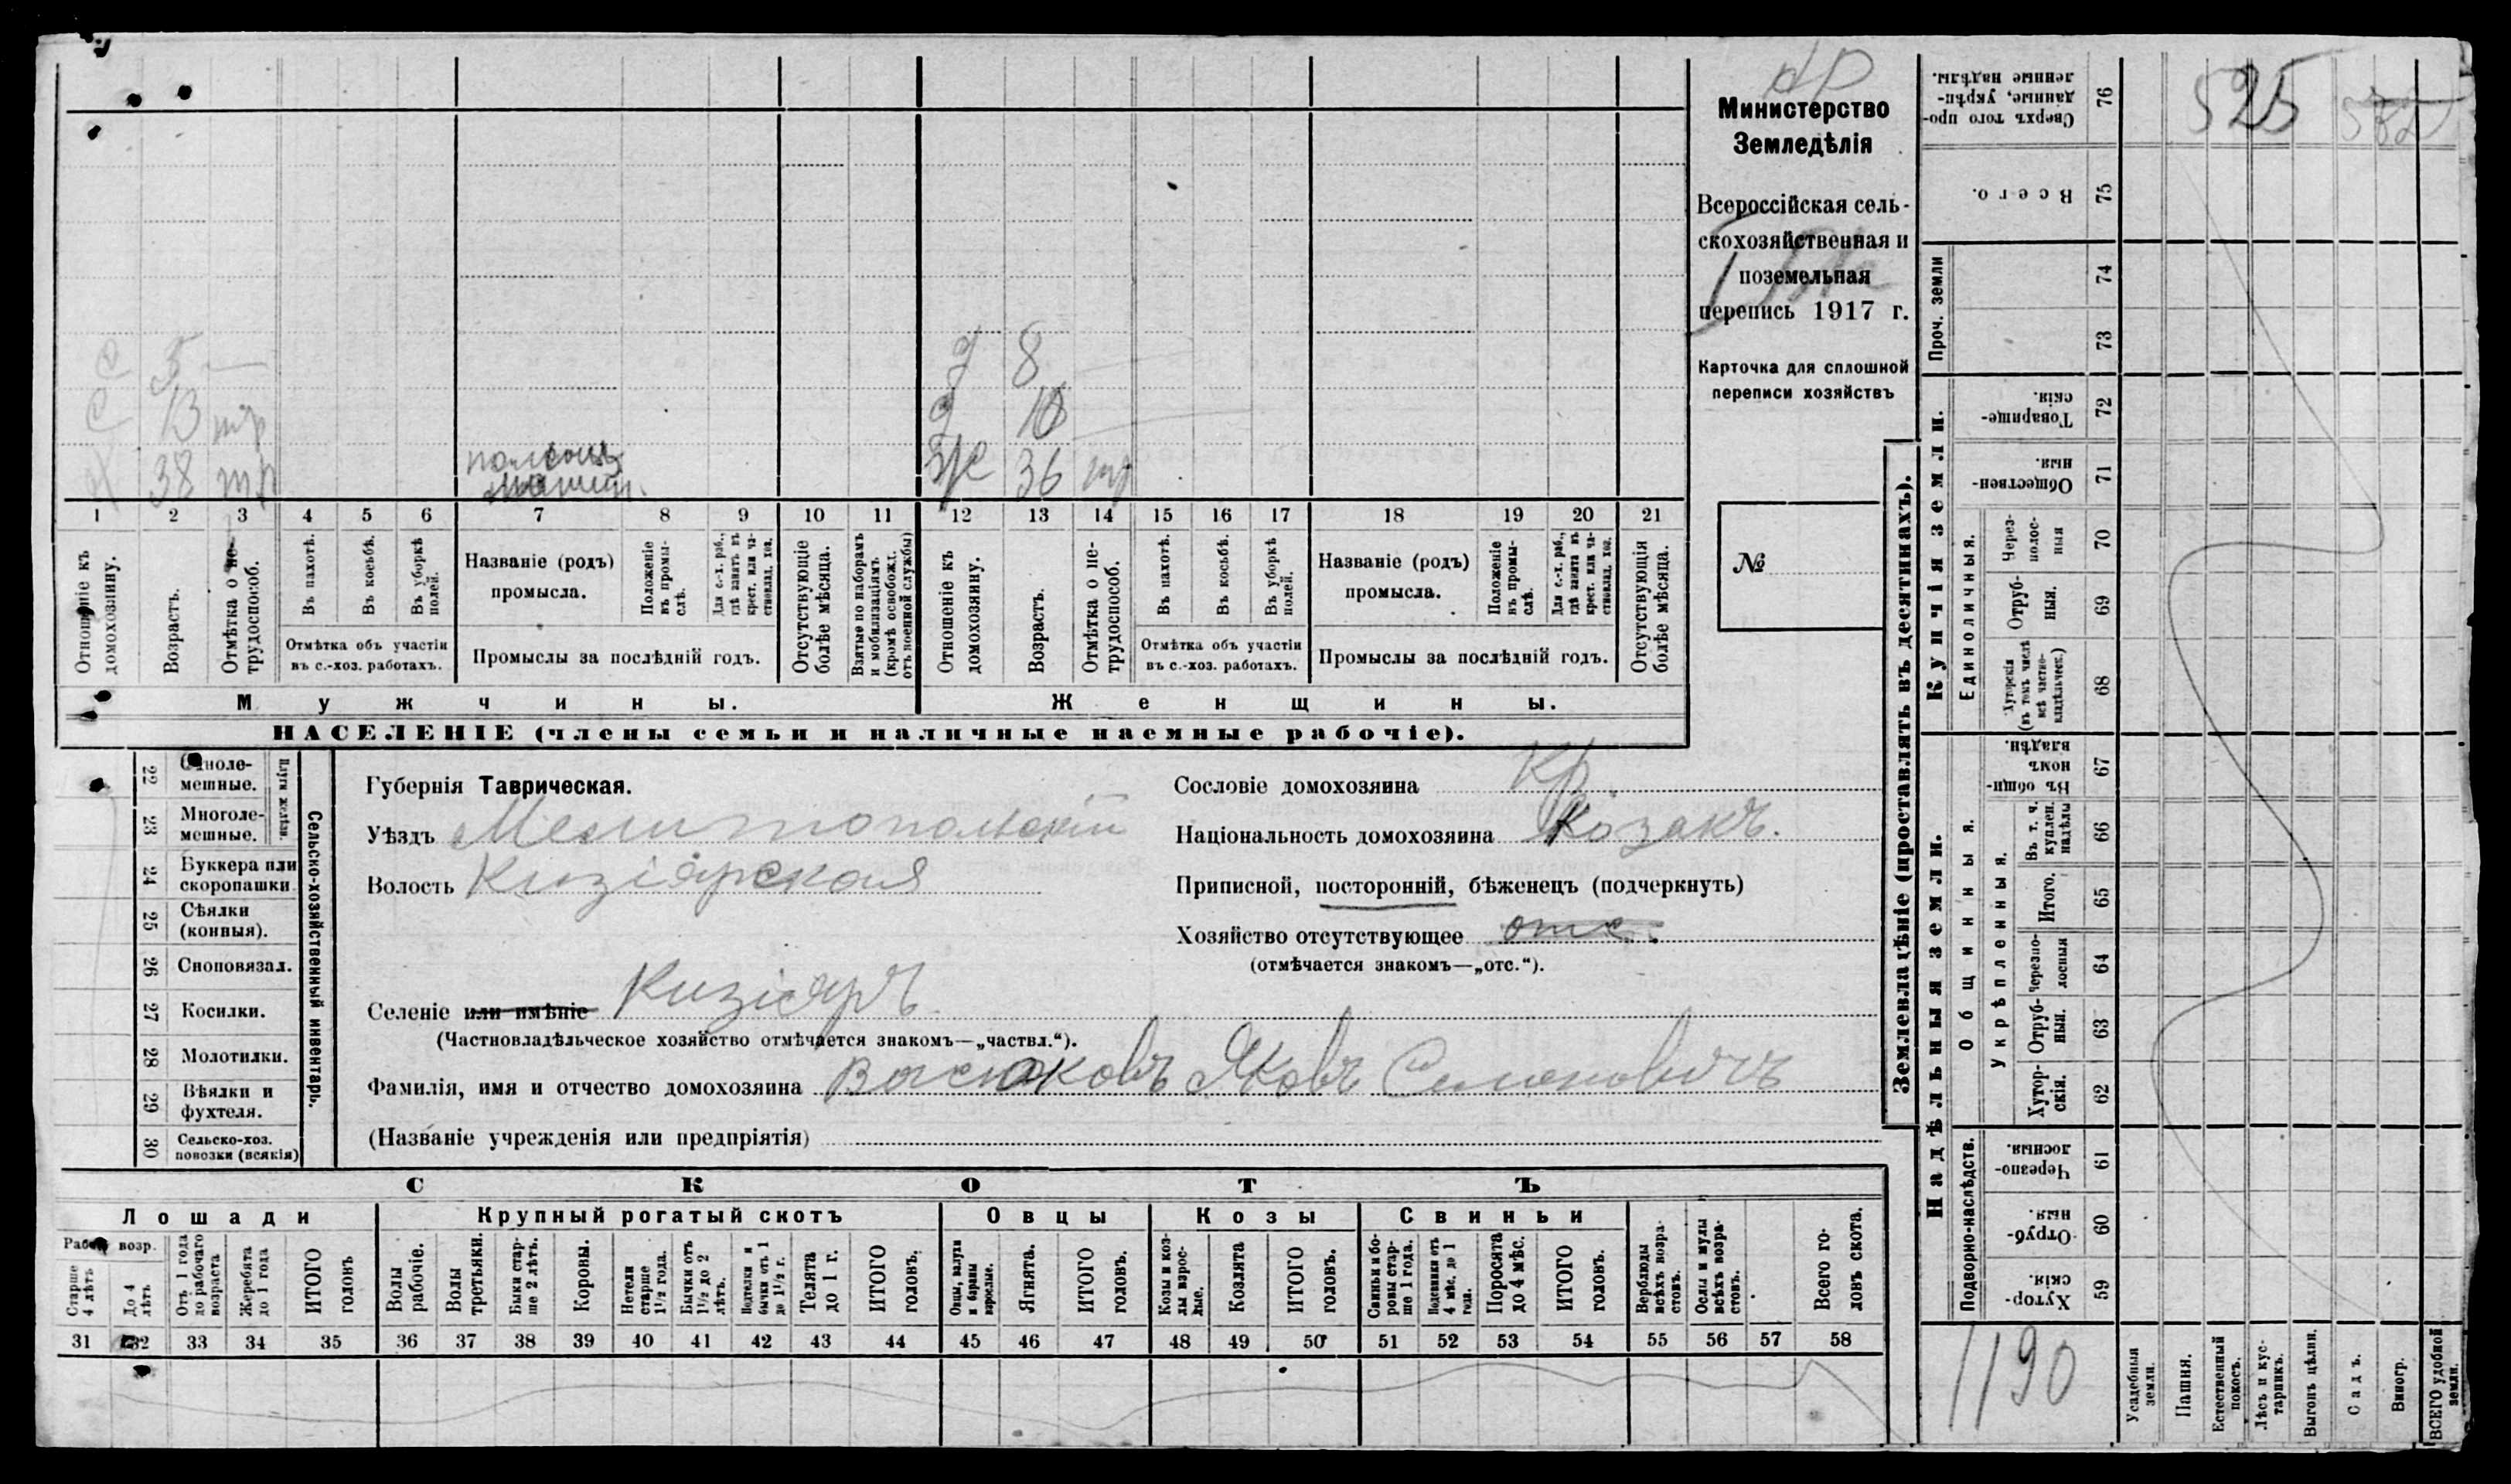 Министерство
Земледѣлія
Всероссійская сель-
скохозяйственная и
поземельная
перепись 1917 г.
Карточка для сплошной
переписи хозяйствъ
№
с 5 —
с 13 тр
38 тр
д 8
д 10
ж 36 тр
1 2 3 4 5 6 7 8 9 10 11 12 13 14 15 16 17 18 19 20 21
Отношеніе къ домохозяину.
Возрастъ.
Отмѣтка о не-трудоспособ.
Въ пахотѣ.
Въ косьбѣ.
Въ уборкѣ полей.
Отмѣтка объ участіи
въ с.-хоз. работахъ.
Названіе (родъ)
промысла.
Положеніе въ промы-слѣ.
Для с.-х. раб., гдѣ занятъ въ крест. или ча-стновлад. хоз.
Промыслы за послѣдній годъ.
Отсутствующіе болѣе мѣсяца.
Взятые по наборамъ и мобилизаціямъ (кромѣ освобожд. отъ военной службы)
Отношеніе къ домохозяину.
Возрастъ.
Отмѣтка о не-трудоспособ.
Въ пахотѣ.
Въ косьбѣ.
Въ уборкѣ полей.
Отмѣтка объ участіи
въ с.-хоз. работахъ.
Названіе (родъ)
промысла.
Положеніе въ промы-слѣ.
Для с.-х. раб., гдѣ занята въ крест. или ча-стновлад. хоз.
Промыслы за послѣдній годъ.
Отсутствующія болѣе мѣсяца.
Мужчины.
Женщины.
НАСЕЛЕНІЕ (члены семьи и наличные наемные рабочіе).
Сельско-хозяйственный инвентарь.
Плуги желѣзн.
22 Одноле-мешные.
23 Многоле-мешные.
24 Буккера или скоропашки
25 Сѣялки (конныя).
26 Сноповязал.
27 Косилки.
28 Молотилки.
29 Вѣялки и фухтеля.
30 Сельско-хоз. повозки (всякія)
Губернія Таврическая.
Уѣздъ Мелитопольскій
Волость Кизіярская
Селеніе или имѣніе Кизіяръ
(Частновладѣльческое хозяйство отмѣчается знакомъ—„частвл.“).
Фамилія, имя и отчество домохозяина Васюковъ Яковъ Семеновичъ
(Названіе учрежденія или предпріятія)
Сословіе домохозяина Кр.
Національность домохозяина Козакъ.
Приписной, посторонній, бѣженецъ (подчеркнуть)
Хозяйство отсутствующее отс.
(отмѣчается знакомъ—„отс.“).
СКОТЪ
Лошади
Рабоч. возр.
Старше 4 лѣтъ
До 4 лѣтъ
Отъ 1 года до рабочаго возраста
Жеребята до 1 года
ИТОГО головъ
Крупный рогатый скотъ
Волы рабочіе.
Волы третьяки.
Быки стар-ше 2 лѣтъ.
Коровы.
Нетели старше 1½ года.
Бычки отъ 1½ до 2 лѣтъ.
Подтелки и бычки отъ 1 до 1½ г.
Телята до 1 г.
ИТОГО головъ.
Овцы
Овцы, валухи и бараны взрослые.
Ягнята.
ИТОГО головъ.
Козы
Козы и коз-лы взрос-лые.
Козлята
ИТОГО головъ.
Свиньи
Свиньи и бо-ровы стар-ше 1 года.
Подсвинки отъ 4 мѣс. до 1 года.
Поросята до 4 мѣс.
ИТОГО головъ.
Верблюды всѣхъ возра-стовъ.
Ослы и мулы всѣхъ возра-стовъ.
Всего го-ловъ скота.
31 32 33 34 35 36 37 38 39 40 41 42 43 44 45 46 47 48 49 50 51 52 53 54 55 56 57 58
Землевладѣніе (проставлять въ десятинахъ).
Сверхъ того про-данные, укрѣп-ленные надѣлы. 76
525
Всего. 75
Проч. земли
74
73
Купчія земли.
Товарище-скія. 72
Обществен-ныя. 71
Единоличныя.
Через-полос-ныя 70
Отруб-ныя. 69
Хуторскія (въ томъ числѣ всѣ частно-владѣльческ.) 68
Надѣльныя земли.
Общинныя.
Въ общи-номъ владѣн. 67
Укрѣпленныя.
Въ т. ч. куплен. надѣлы 66
Итого. 65
Черезпо-лосныя 64
Отруб-ныя. 63
Хутор-скія. 62
Подворно-наслѣдств.
Черезпо-лосныя. 61
Отруб-ныя. 60
Хутор-скія. 59
1190
Усадебныя земли.
Пашня.
Естественный покосъ.
Лѣсъ и кус-тарникъ.
Выгонъ цѣлин.
Садъ.
Виногр.
ВСЕГО удобной земли.